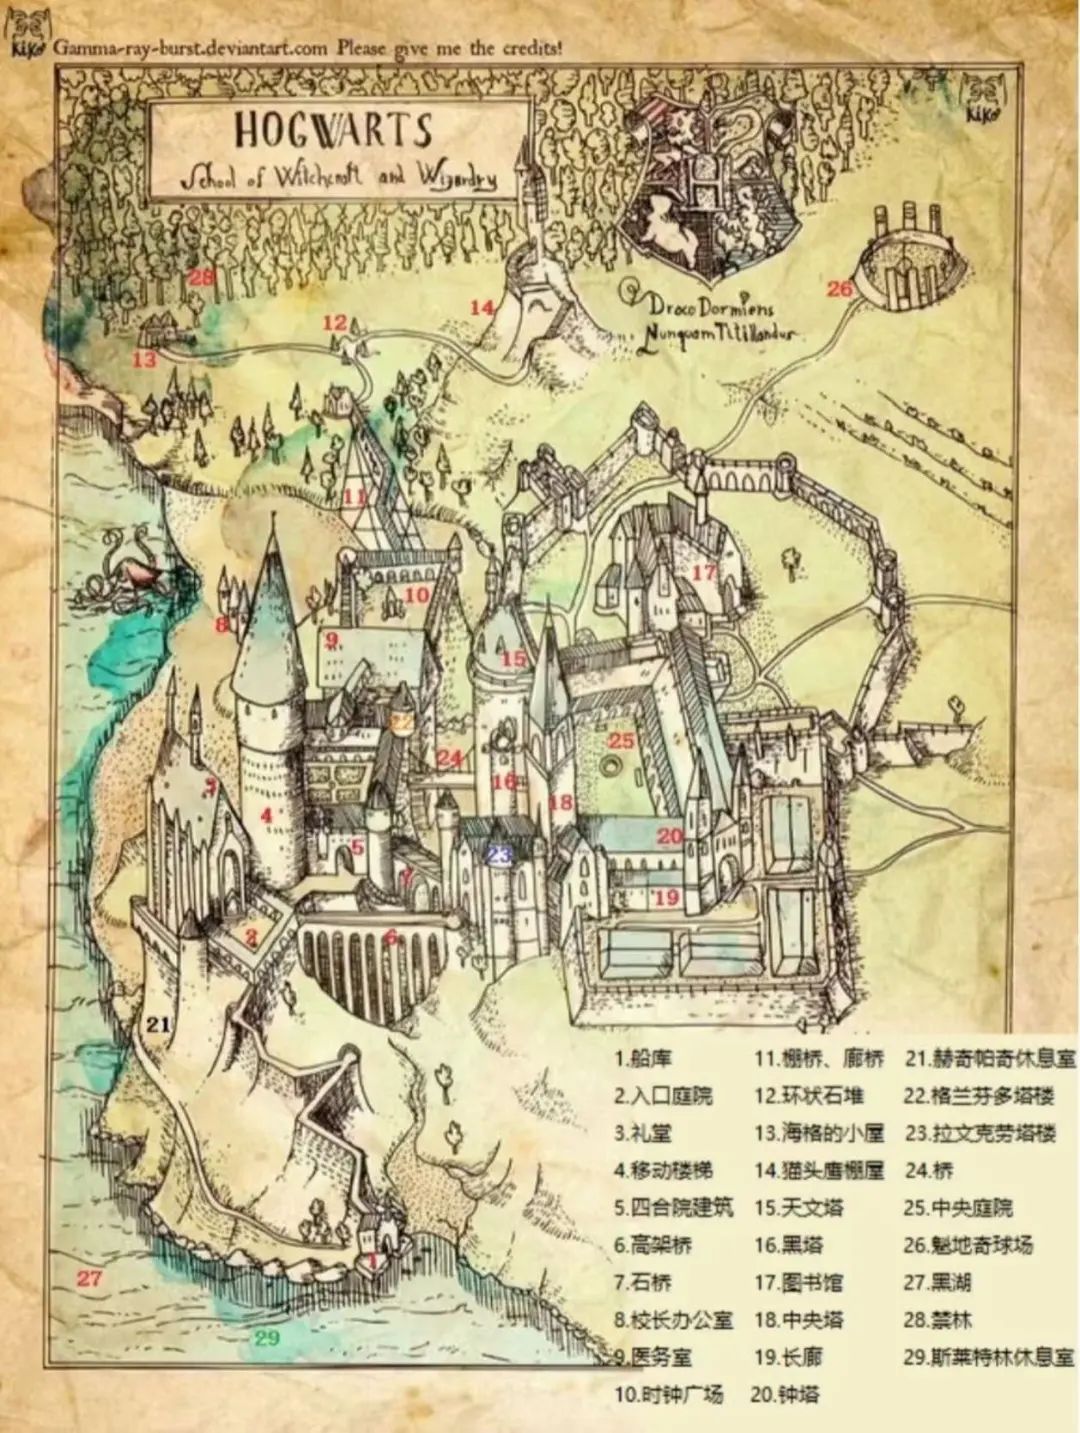 KiKo Gamma-ray-burst.deviantart.com Please give me the credits!
KiKo
HOGWARTS
School of Witchcraft and Wizardry
H
28
14
26
Draco Dormiens
Nunquam Titillandus
12
13
11
17
10
8
9
15
22
25
24
3
16
18
4
20
5
23
7
19
2
6
21
1
27
29
1.船库
2.入口庭院
3.礼堂
4.移动楼梯
5.四合院建筑
6.高架桥
7.石桥
8.校长办公室
9.医务室
10.时钟广场
11.棚桥、廊桥
12.环状石堆
13.海格的小屋
14.猫头鹰棚屋
15.天文塔
16.黑塔
17.图书馆
18.中央塔
19.长廊
20.钟塔
21.赫奇帕奇休息室
22.格兰芬多塔楼
23.拉文克劳塔楼
24.桥
25.中央庭院
26.魁地奇球场
27.黑湖
28.禁林
29.斯莱特林休息室